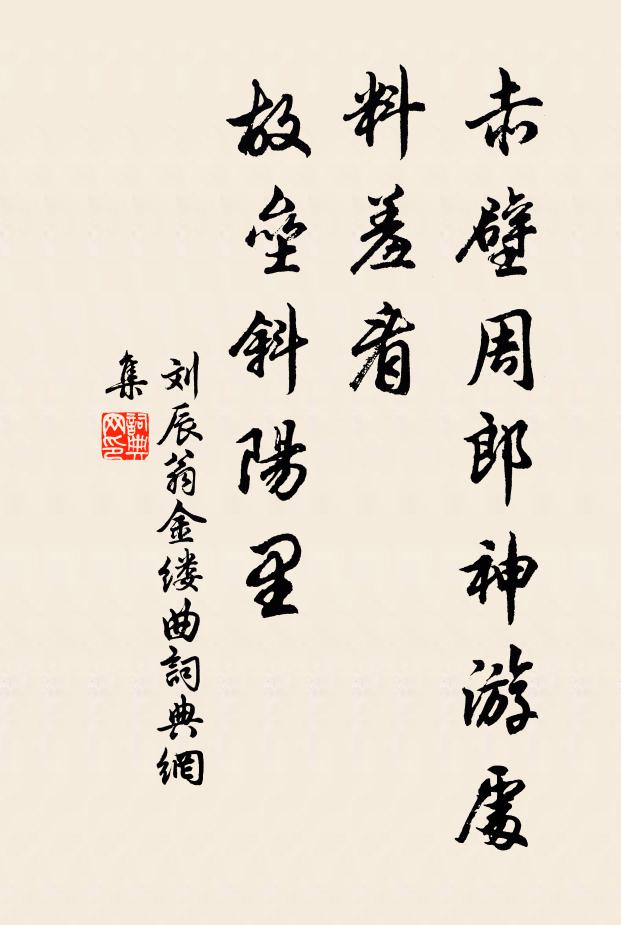 赤壁周郎神游處
料羞看
故壘斜陽里
刘辰翁金缕曲詞典網
集
詞典
网印